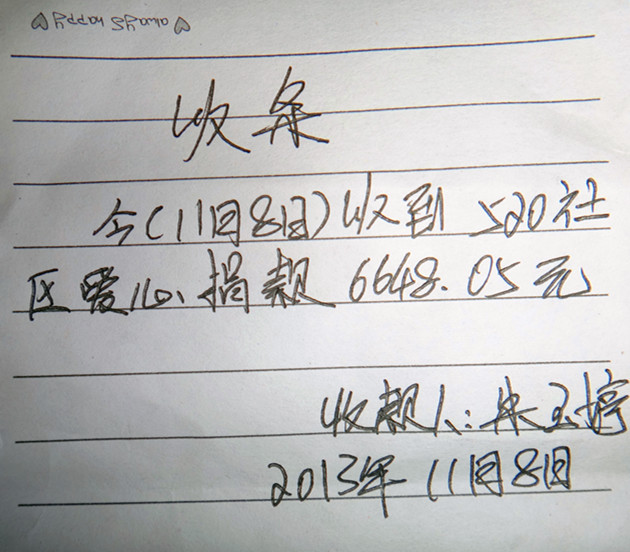 always happy
收条
今(11月8日)收到520社
区爱心捐款6648.05元
收款人:朱玉婷
2013年11月8日